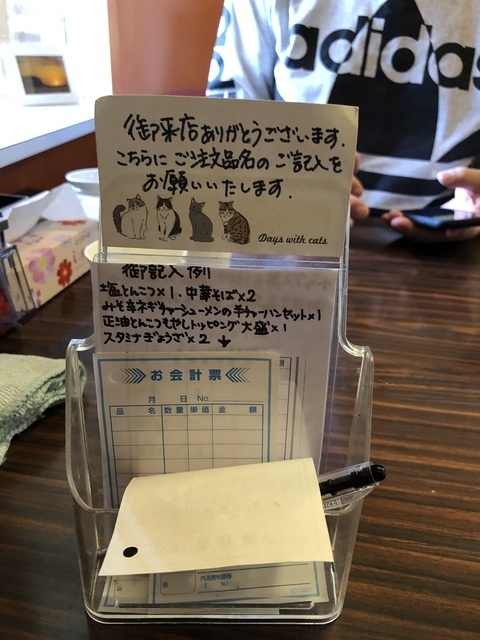 adidas
御来店ありがとうございます.
こちらに ご注文品名の ご記入を
お願いいたします.
Days with cats
御記入例
塩とんこつ×1. 中華そば×2
みそ辛ネギチャーシューメンの半チャーハンセット×1
正油とんこつもやしトッピング大盛×1
スタミナぎょうざ×2 ↓
お会計票
月 日 No.
品 名 数量 単価 金 額